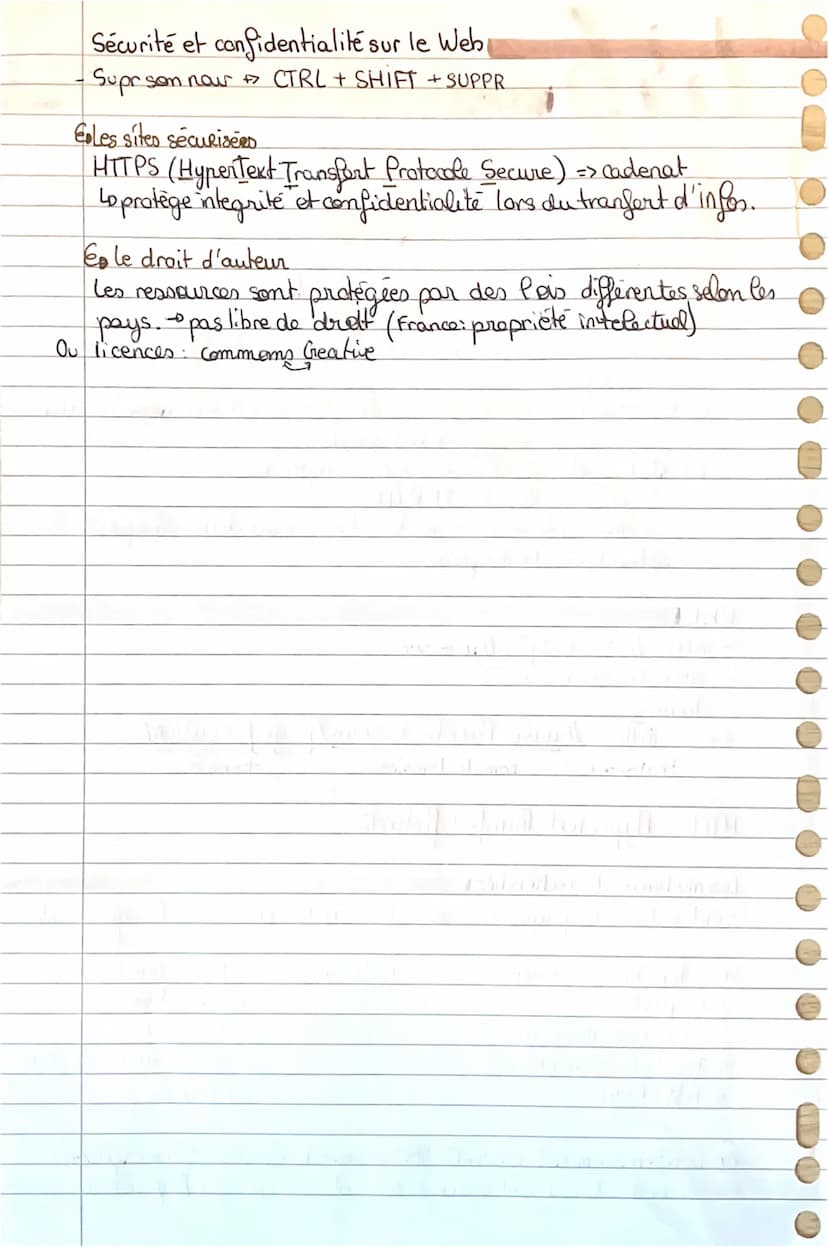 Sécurité et confidentialité sur le Web
- Supr son nav ↔ CTRL + SHIFT + SUPPR
les sites sécurisées
HTTPS (HyperText Transfert Protocole Secure) => cadenat
↳ protège integrité et confidentialité lors du tranfert d'infos.
le droit d'auteur
les ressources sont protégées par des lois différentes selon les
pays. → pas libre de droit (France: propriété intelectuel)
Ou licences : commoms Creative